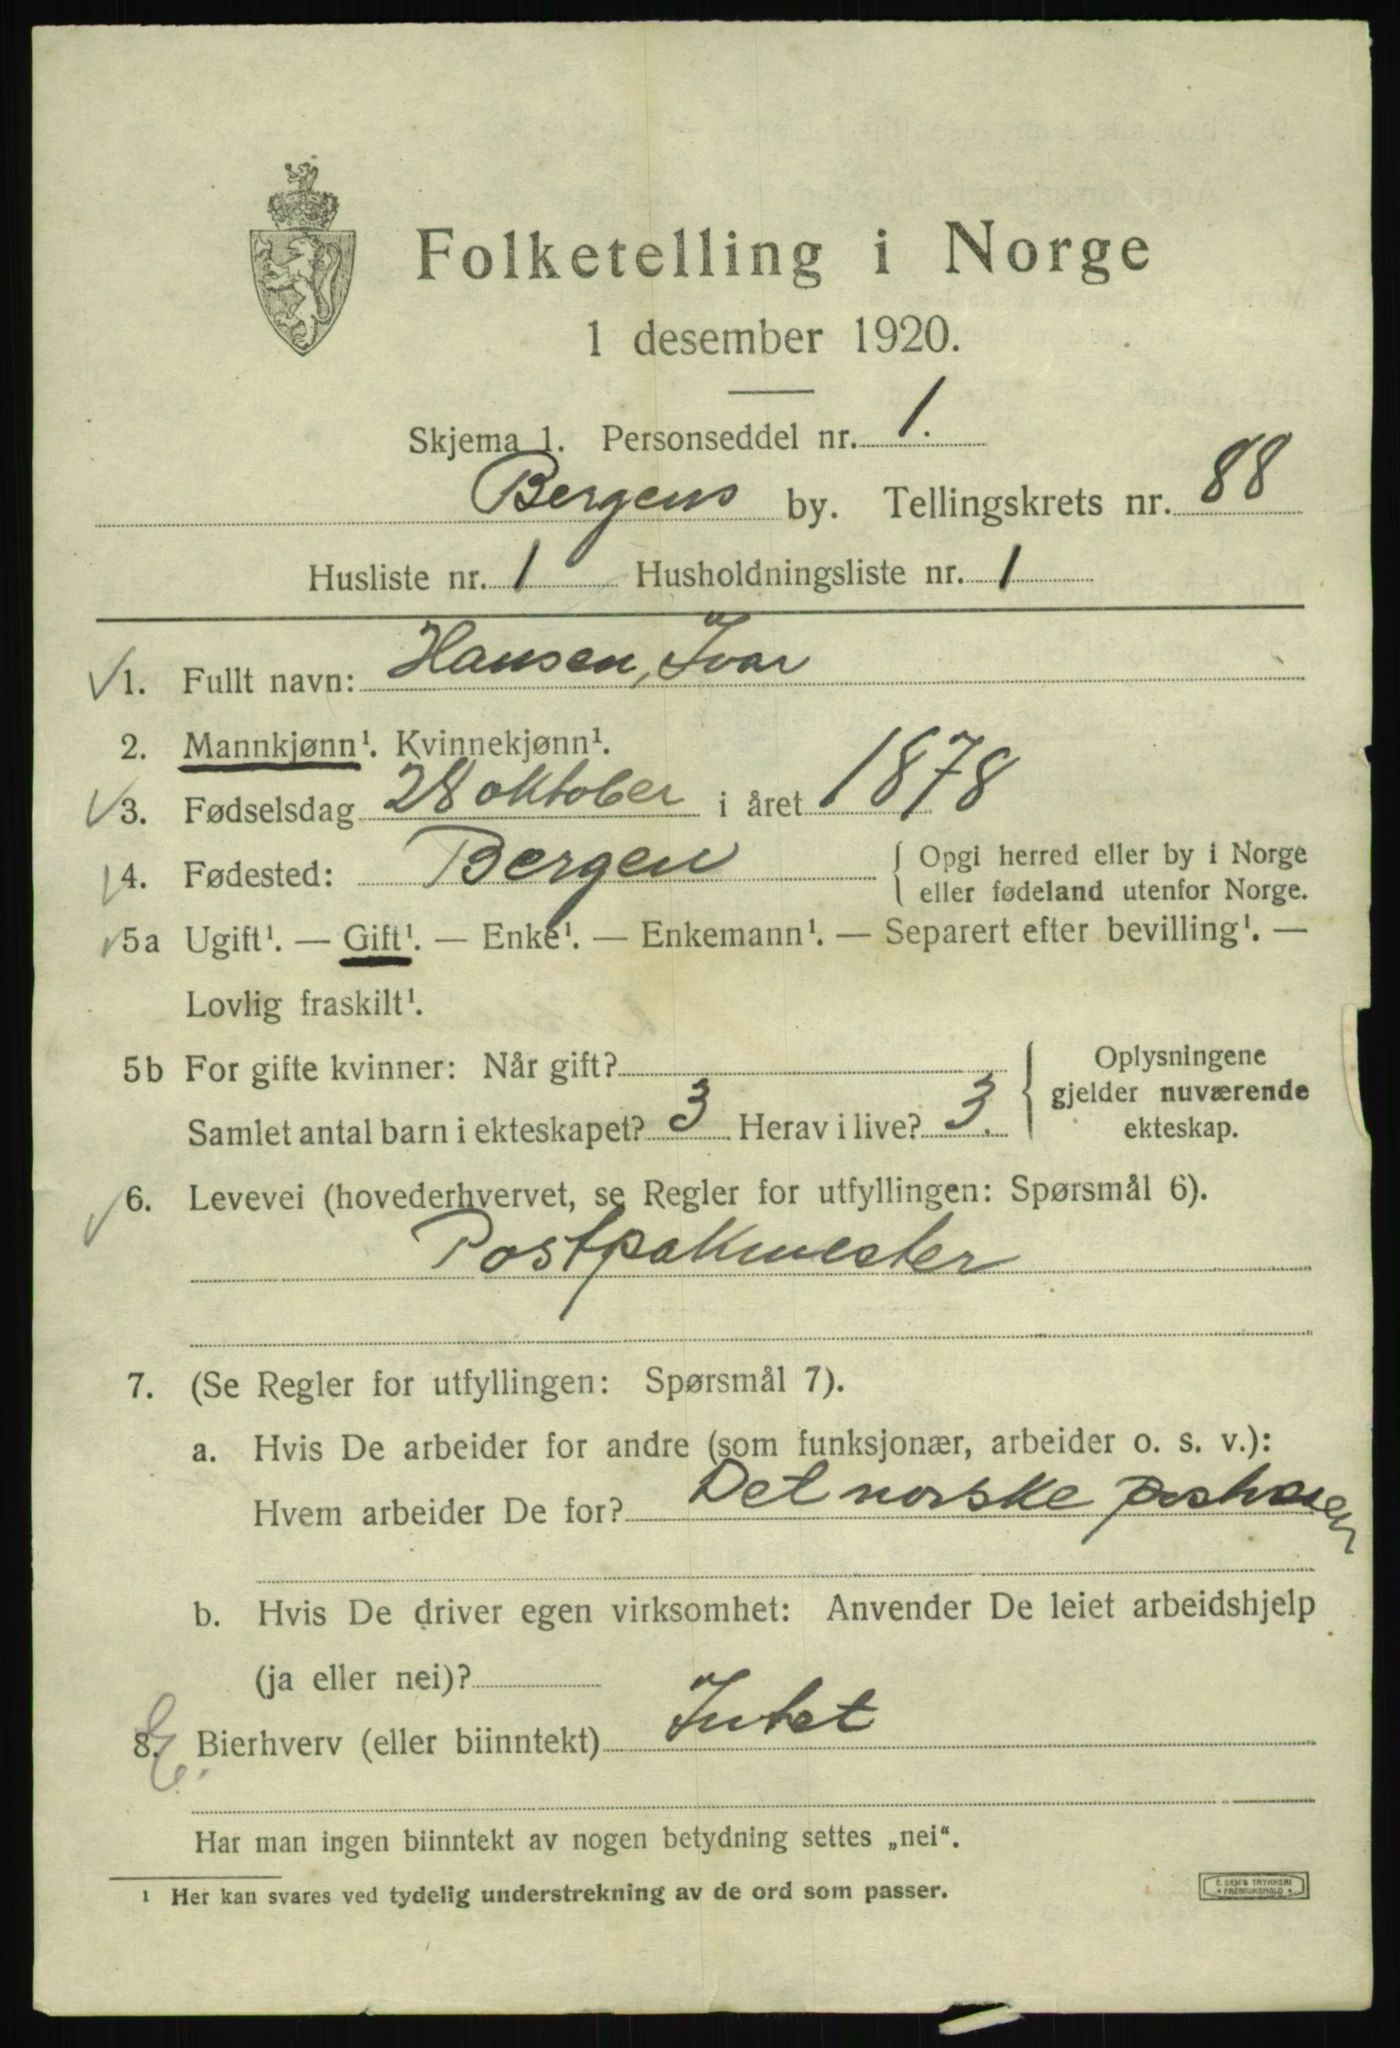 Folketelling i Norge
1 desember 1920.
Skjema 1. Personseddel nr. 1.
Bergens by. Tellingskrets nr. 88
Husliste nr. 1 Husholdningsliste nr. 1
1. Fullt navn: Hansen, Ivar
2. Mannkjønn¹. Kvinnekjønn¹.
3. Fødselsdag 28 oktober i året 1878
4. Fødested: Bergen { Opgi herred eller by i Norge
eller fødeland utenfor Norge.
5a Ugift¹. — Gift¹. — Enke¹. — Enkemann¹. — Separert efter bevilling¹. —
Lovlig fraskilt¹.
5b For gifte kvinner: Når gift? { Oplysningene
gjelder nuværende
Samlet antal barn i ekteskapet? 3 Herav i live? 3. ekteskap.
6. Levevei (hovederhvervet, se Regler for utfyllingen: Spørsmål 6).
Postpakmester
7. (Se Regler for utfyllingen: Spørsmål 7).
a. Hvis De arbeider for andre (som funksjonær, arbeider o. s. v.):
Hvem arbeider De for? Det norske
b. Hvis De driver egen virksomhet: Anvender De leiet arbeidshjelp
(ja eller nei)?
8. Bierhverv (eller biinntekt) Intet
Har man ingen biinntekt av nogen betydning settes „nei“.
¹ Her kan svares ved tydelig understrekning av de ord som passer.
E. SEM'S TRYKKERI
• FREDRIKSHALD •